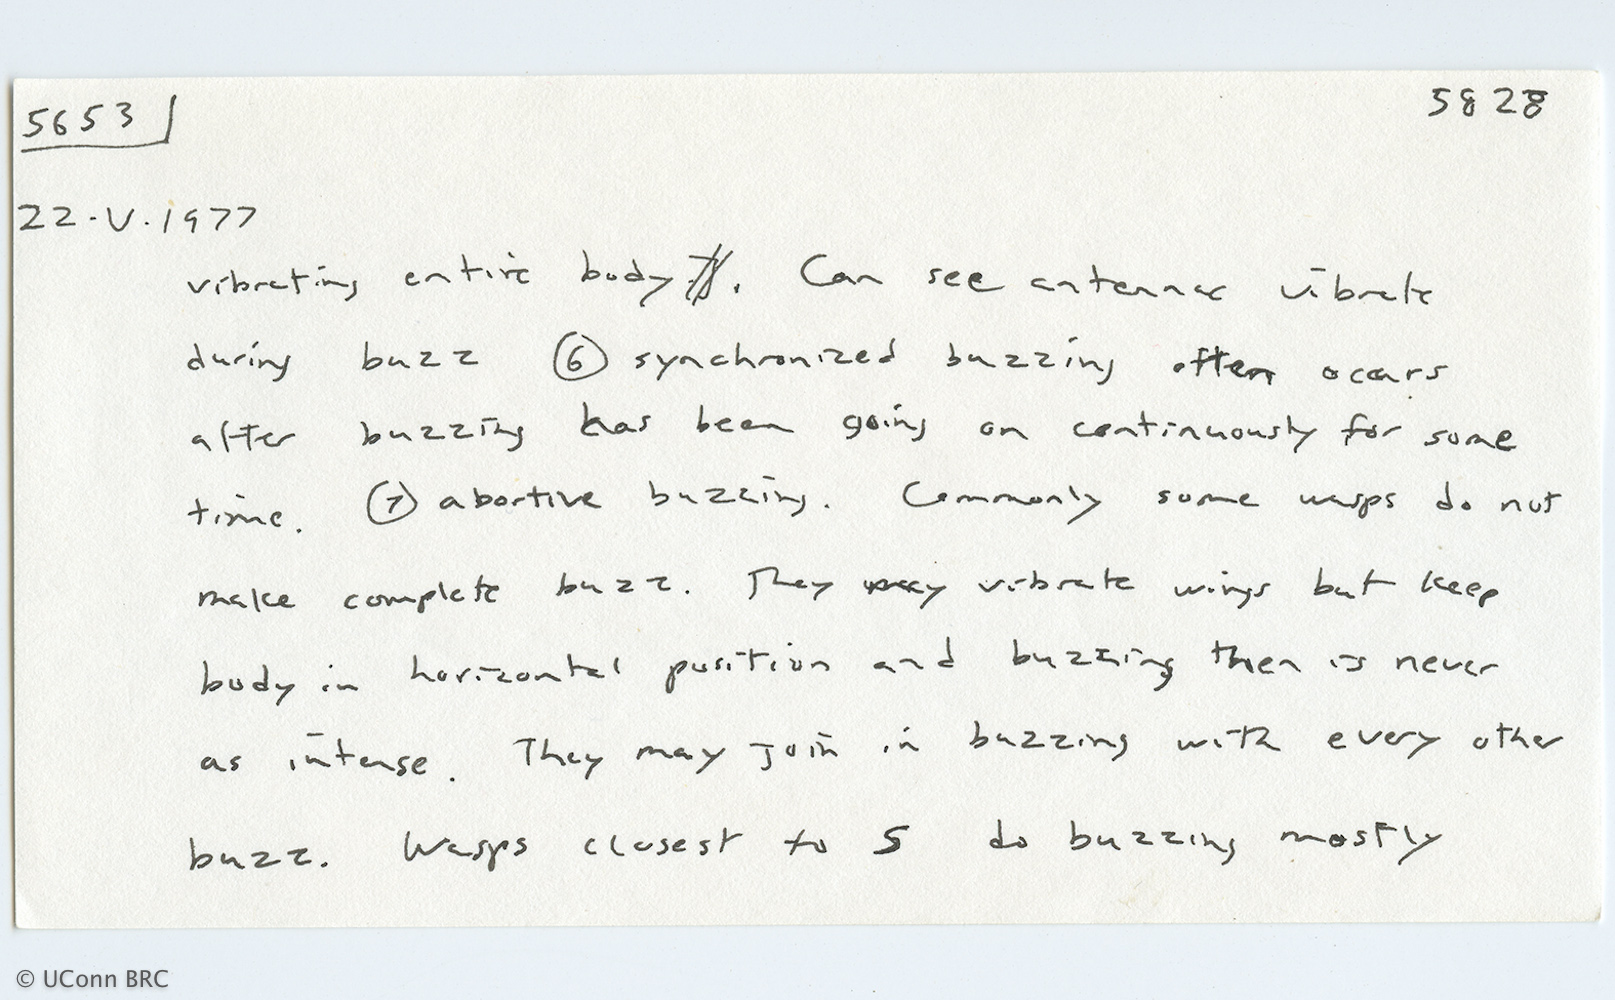 5653 5828
22.V.1977
vibrating entire body. Can see antennae vibrate
during buzz ⑥ synchronized buzzing often occurs
after buzzing has been going on continuously for some
time. ⑦ abortive buzzing. Commonly some wasps do not
make complete buzz. They may vibrate wings but keep
body in horizontal position and buzzing then is never
as intense. They may join in buzzing with every other
buzz. Wasps closest to S do buzzing mostly
© UConn BRC